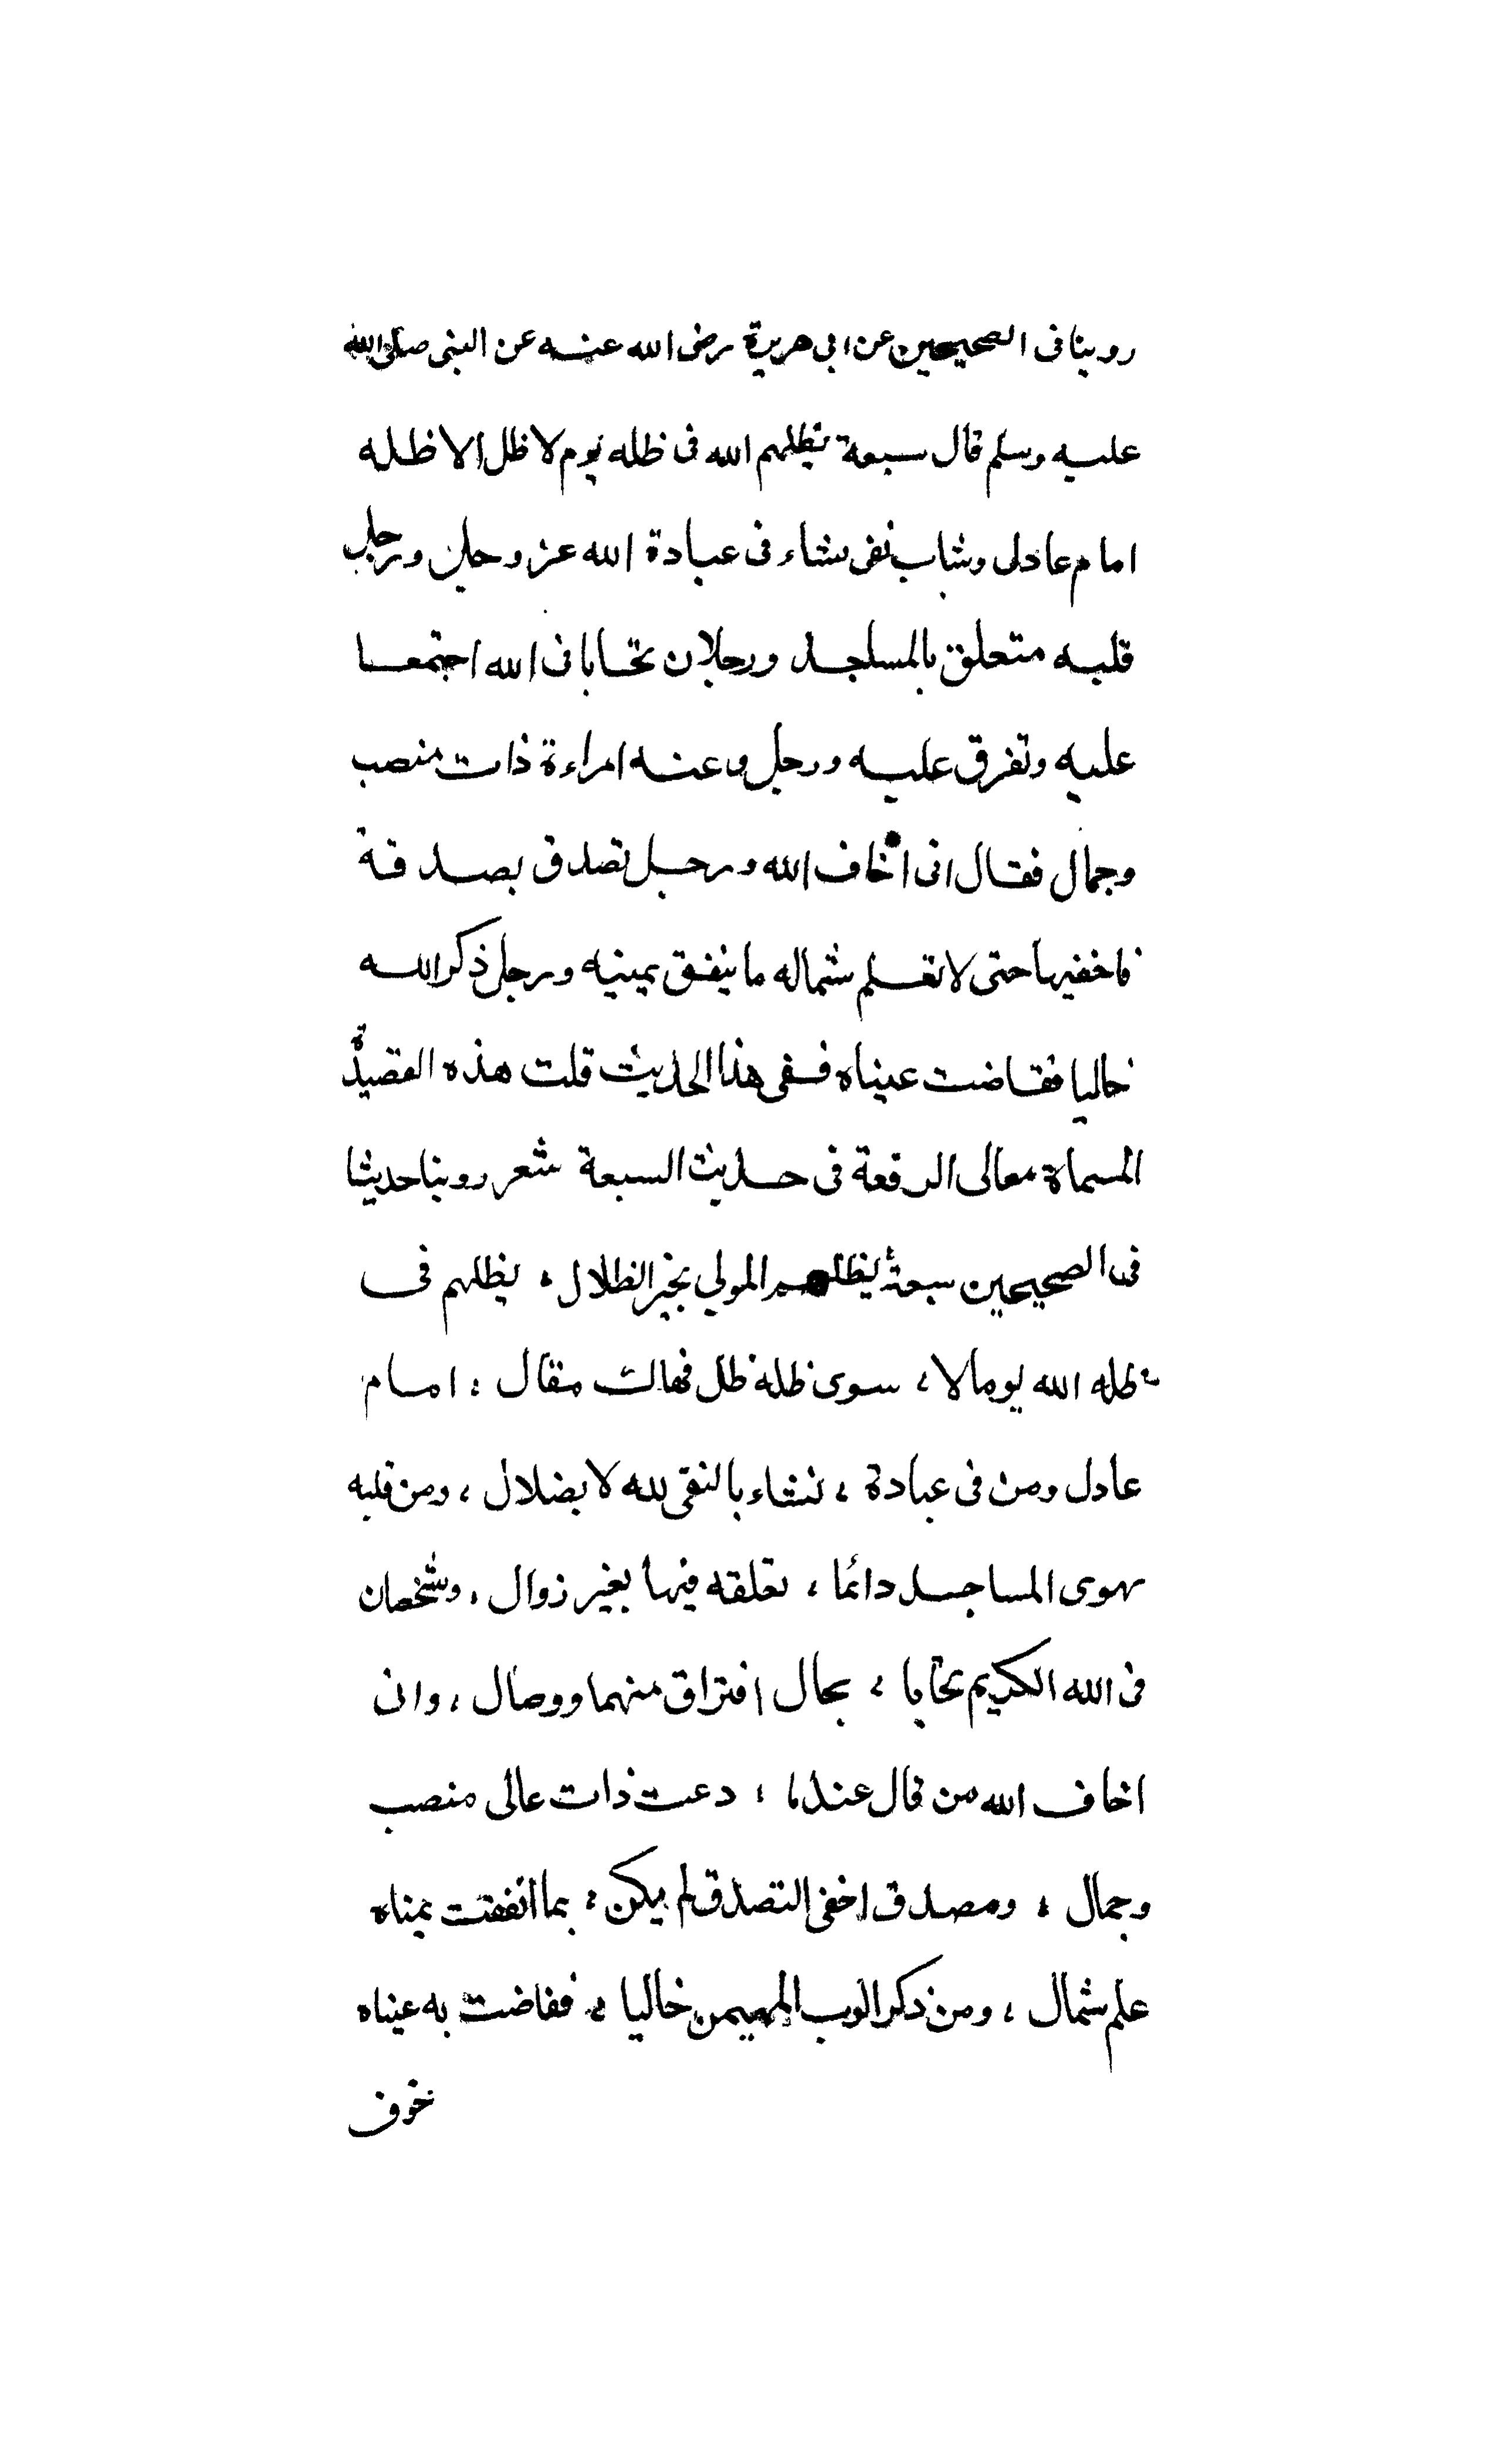 روينا فى الصحيحين عن ابى هريرة رضى الله عنه عن النبى صلى الله
عليه وسلم قال سبعة يظلهم الله فى ظله يوم لا ظل الا ظله
امام عادل وشاب نشاء فى عبادة الله عز وجل ورجل
قلبه متعلق بالمساجد ورجلان تحابا فى الله اجتمعا
عليه وتفرق عليه ورجل دعته امراءة ذات منصب
وجمال فقال انى اخاف الله ورجل تصدق بصدقة
فاخفيها حتى لا تعلم شماله ما ينفق يمينه ورجل ذكر الله
خاليا ففاضت عيناه ففى هذا الحديث قلت هذه القصيدة
المسماة معالى الرفعة فى حديث السبعة شعر روينا حديثا
فى الصحيحين سبعة يظلهم المولي بخير الظلال ، يظلهم فى
ظله الله يوما لا ، سوى ظله ظل فهاك مقال ، امام
عادل ومن فى عبادة ، نشاء بالتقى لله لا بضلال ، ومن قلبه
يهوى المساجد دائما ، تعلقه فيها بغير زوال ، وشخصان
فى الله الكريم تحابا ، بحال افتراق منهما ووصال ، وانى
اخاف الله من قال عندما ، دعت ذات عالى منصب
وجمال ، ومصدق اخفى التصدق لم يكن ، بما انفقت يمناه
علم شمال ، ومن ذكر الرب المهيمن خاليا ، ففاضت به عيناه
خوف